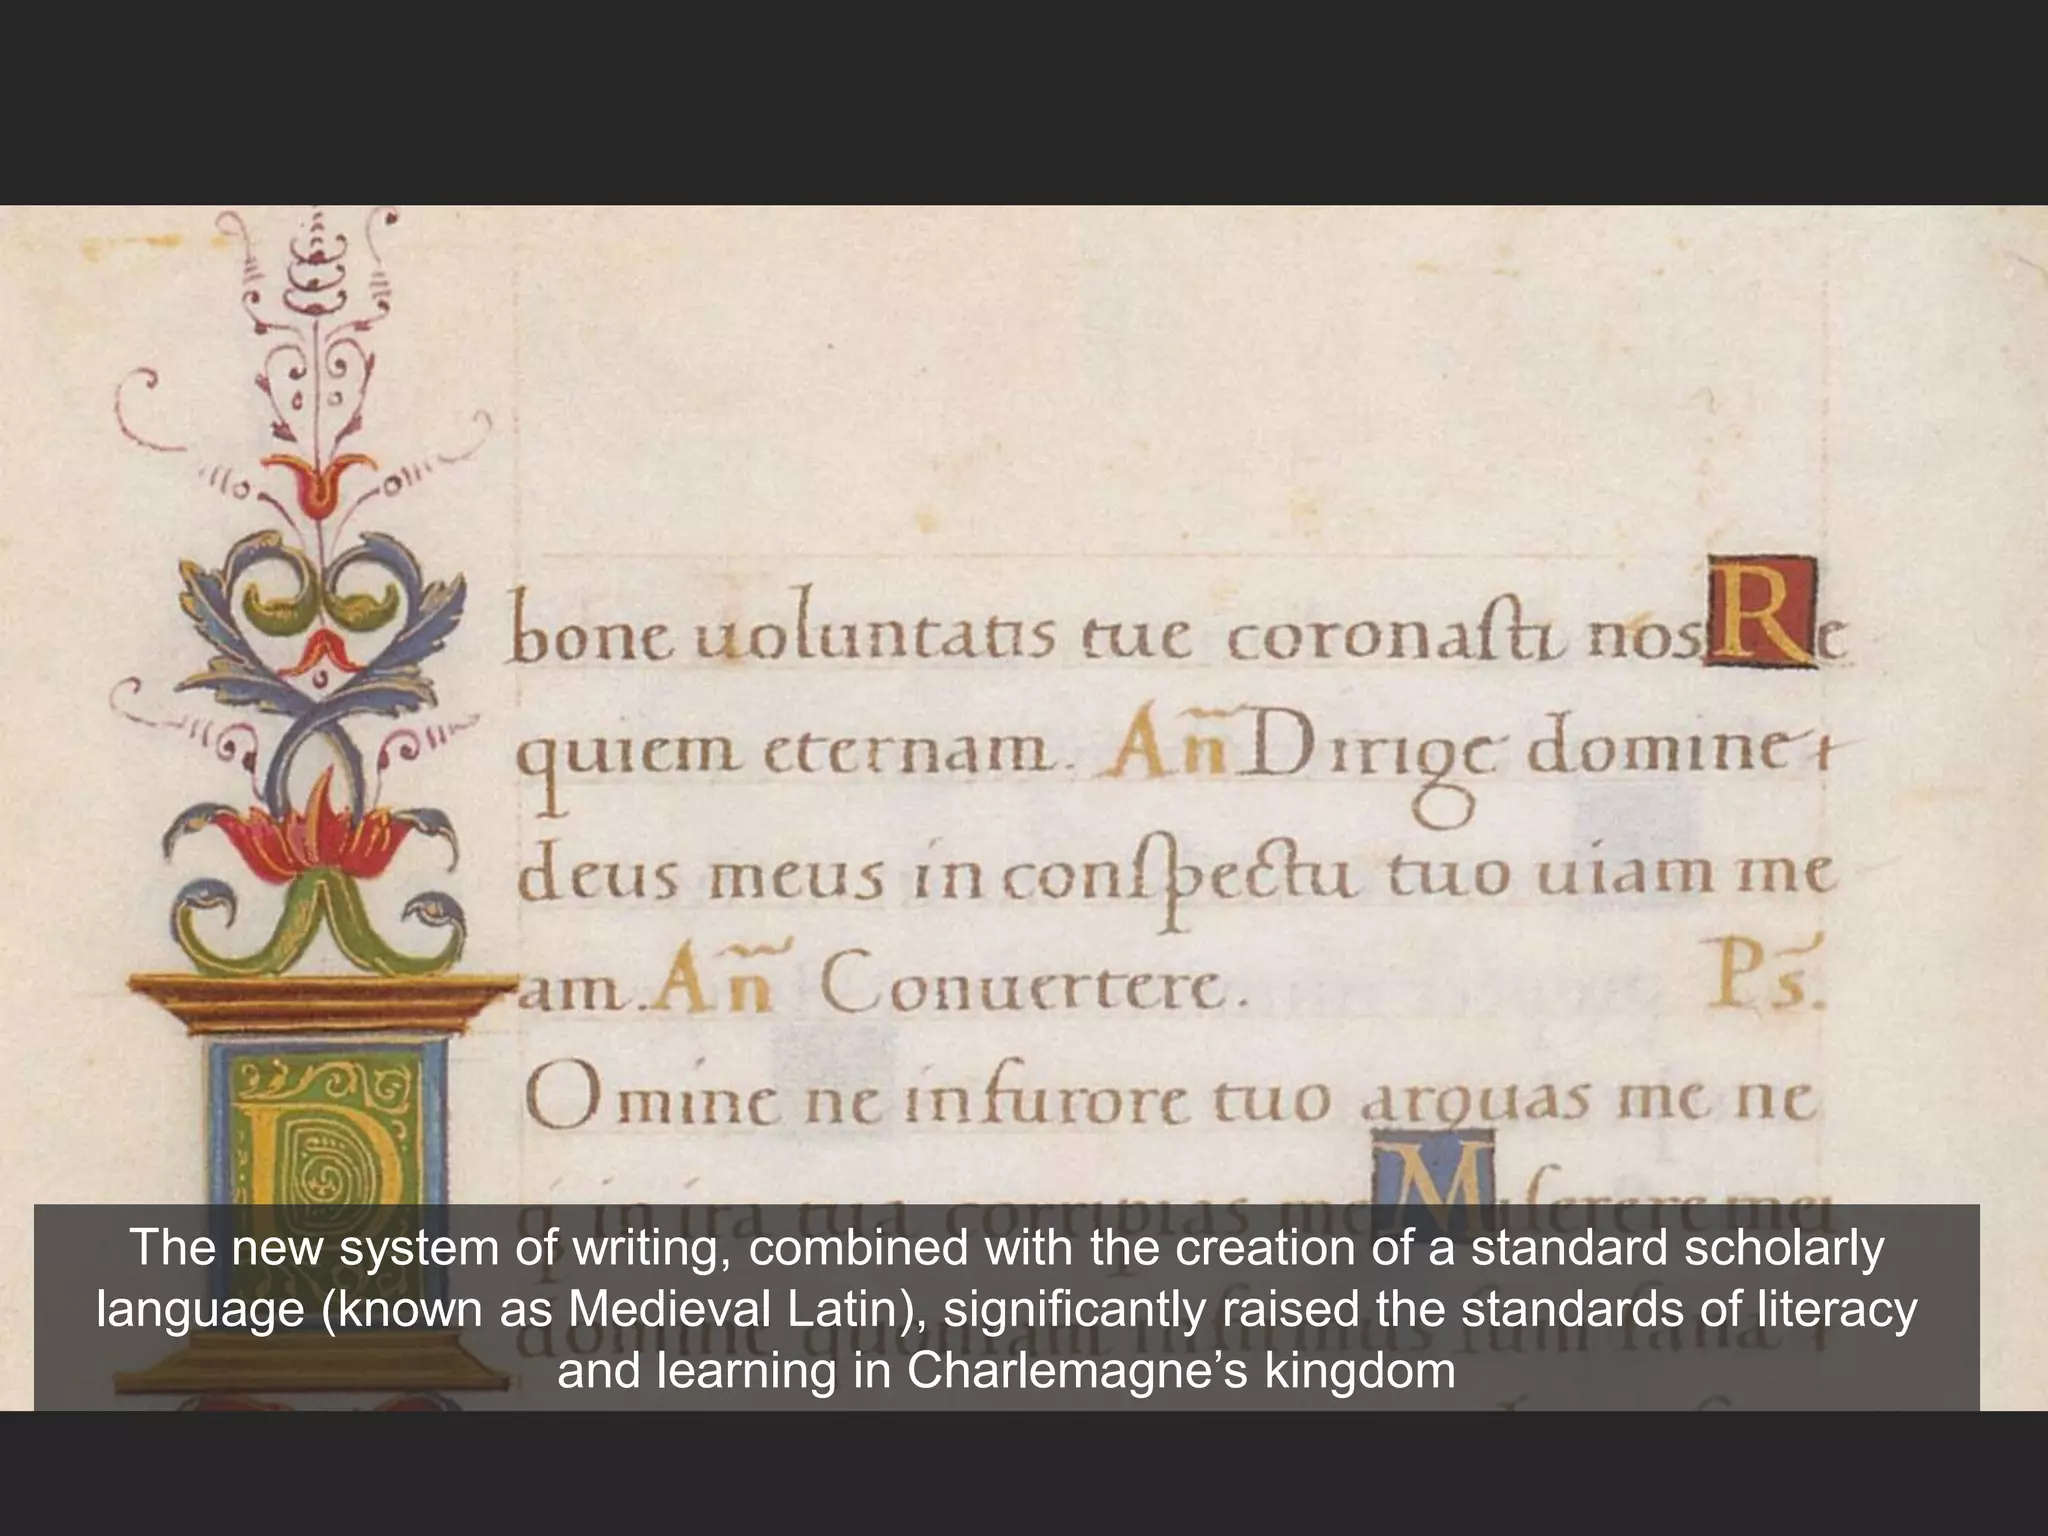 bone uoluntatis tue coronaſti nos Re
quiem eternam. Añ Dirige domine
deus meus in conſpectu tuo uiam me
am. Añ Conuertere. Ps.
D
Omine ne in furore tuo arguas me ne
q in ira tua corripias me Miſerere mei
domine quoniam infirmus ſum ſana
The new system of writing, combined with the creation of a standard scholarly
language (known as Medieval Latin), significantly raised the standards of literacy
and learning in Charlemagne’s kingdom